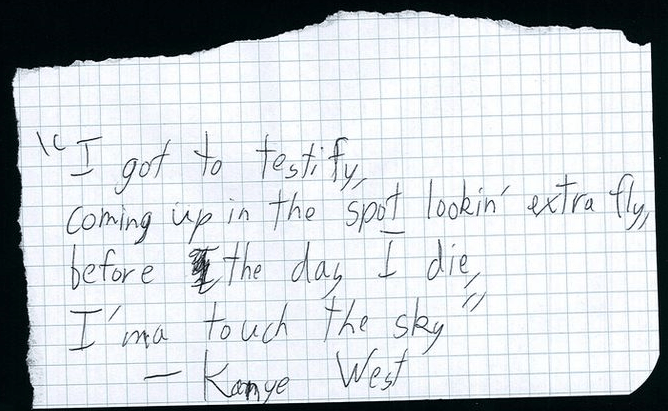 "I got to testify,
coming up in the spot lookin' extra fly,
before the day I die,
I'ma touch the sky"
— Kanye West